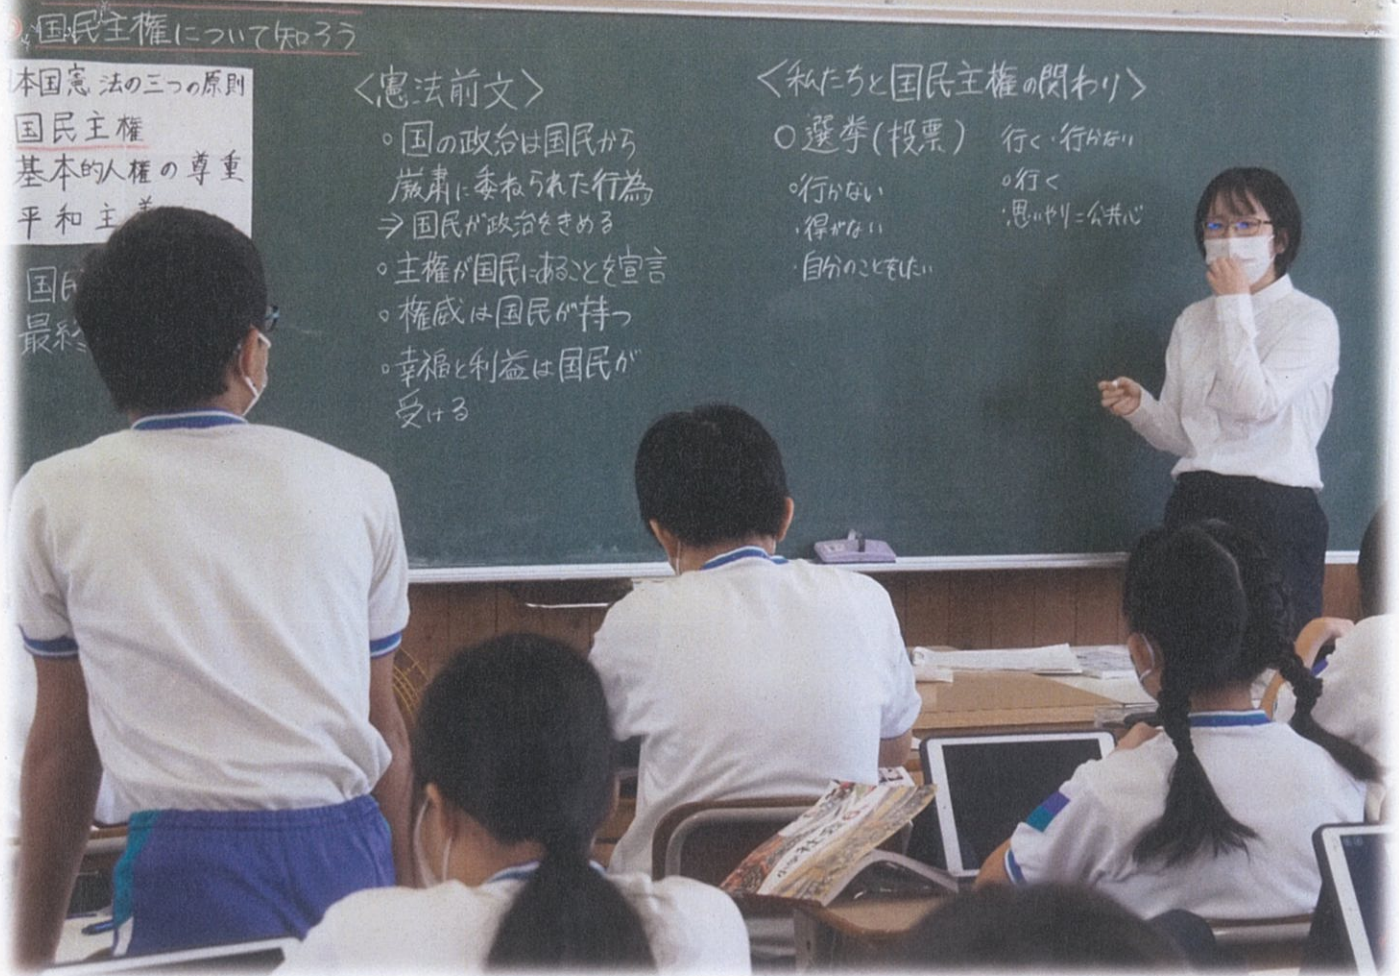 国民主権について知ろう
本国憲法の三つの原則
国民主権
基本的人権の尊重
平和主義
国民
最終
〈憲法前文〉
○国の政治は国民から
厳粛に委ねられた行為
⇒国民が政治をきめる
○主権が国民にあることを宣言
○権威は国民が持つ
○幸福と利益は国民が
受ける
〈私たちと国民主権の関わり〉
○選挙(投票)
○行かない
・得がない
・自分のことをしたい
行く・行かない
○行く
・思いやり=公共心